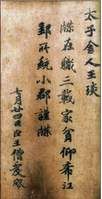 太子舍人王琰
牒在職三載家貧仰希江
郢所統小郡謹牒
七月廿四日臣王僧虔啟